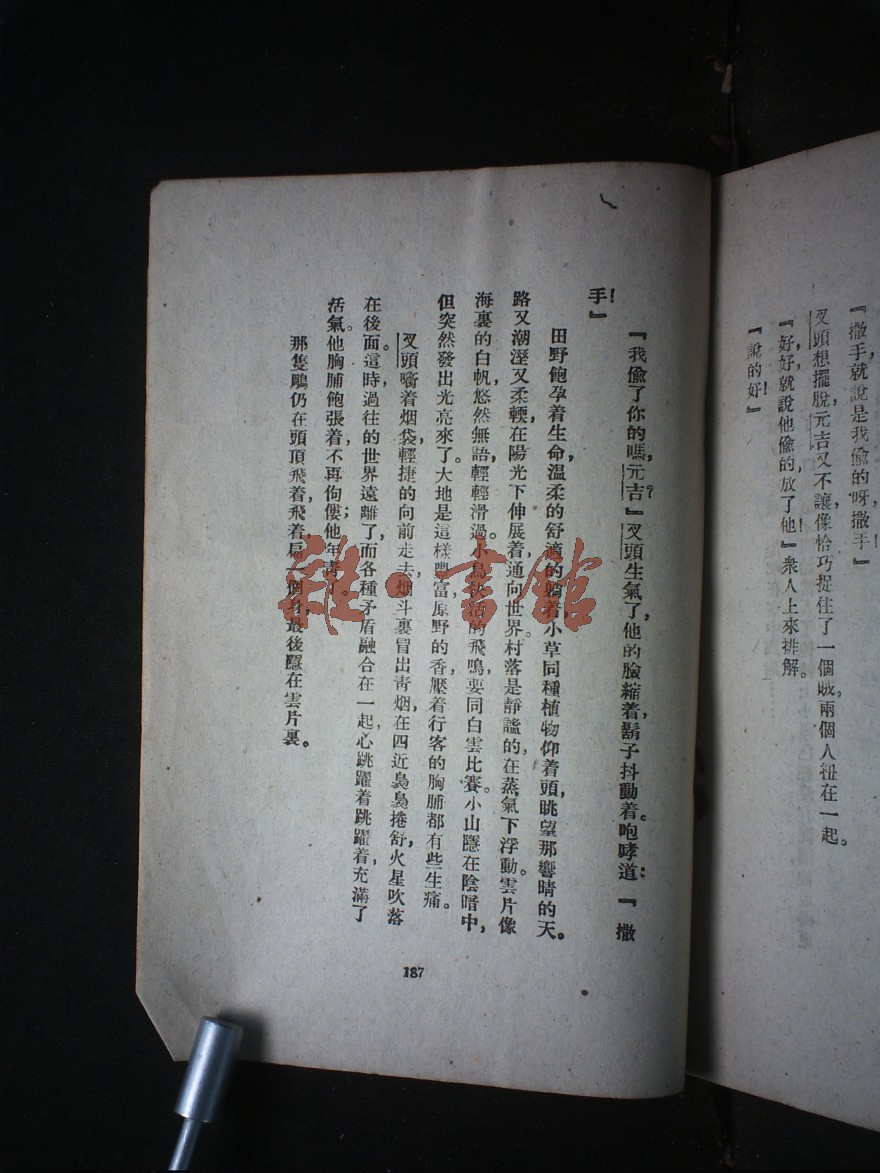 『撒手就說是我偷的呀，撒手』
叉頭想擺脫，元吉又不讓，像恰巧捉住了一個賊，兩個人扭在一起。
『好，好，就說他偷的，放了他！』衆人上來排解。
『說的好！』
『我偷了你的嗎，元吉？』叉頭生氣了，他的臉縮着，鬍子抖動着。咆哮道：『撒
手！』
田野飽孕着生命，溫柔的舒適的躺着，小草同種植物仰着頭，眺望那響晴的天。
路又潮溼又柔輭，在陽光下伸展着，通向世界。村落是靜謐的，在蒸氣下浮動。雲片像
海裏的白帆，悠然無語，輕輕滑過。小鳥快活的飛鳴，要同白雲比賽。小山隱在陰暗中，
但突然發出光亮來了。大地是這樣豐富，原野的香壓着行客的胸脯都有些生痛。
叉頭嘴着烟袋，輕捷的向前走去，烟斗裏冒出靑烟，在四近裊裊捲舒，火星吹落
在後面。這時，過往的世界遠離了，而各種矛盾融合在一起，心跳躍着跳躍着，充滿了
活氣。他胸脯飽張着，不再佝僂；他年靑了
那隻鵰仍在頭頂飛着，飛着，扁一個身，最後隱在雲片裏。
187
雜·書館